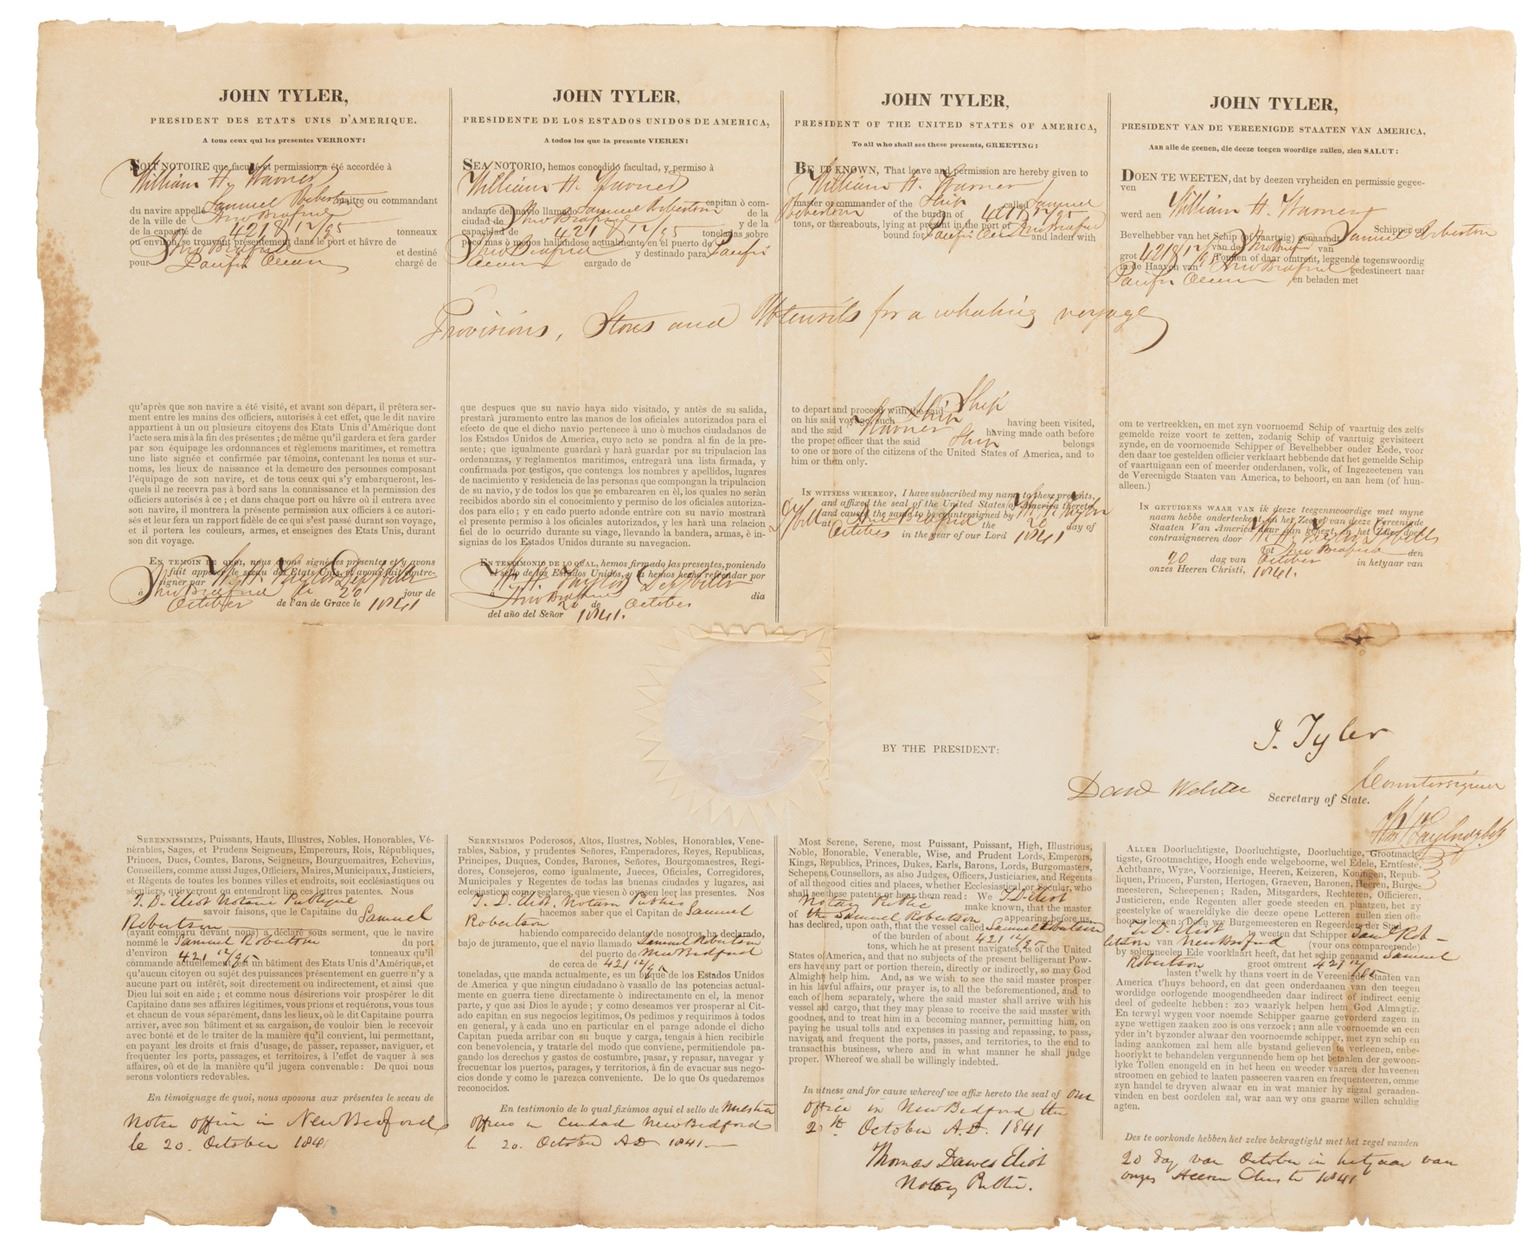 JOHN TYLER,
PRESIDENT DES ETATS UNIS D'AMERIQUE.
A tous ceux qui les presentes VERRONT:
SOIT NOTOIRE que faculté et permission a été accordée à
William H. Warner
maître ou commandant
du navire appelé Samuel Robertson
de la ville de New Bedford
de la capacité de 421 8/12/95 tonneaux
ou environ, se trouvant présentement dans le port et hâvre de
New Bedford et destiné
pour Pacific Ocean chargé de
JOHN TYLER,
PRESIDENTE DE LOS ESTADOS UNIDOS DE AMERICA,
A todos los que la presente VIEREN:
SEA NOTORIO, hemos concedido facultad, y permiso à
William H. Warner
capitan ò com-
andante del navio llamado Samuel Robertson de la
ciudad de New Bedford y de la
capacidad de 421 8/12/95 toneladas sobre
poco mas ò menos hallandose actualmente en el puerto de
New Bedford y destinado para Pacific
Ocean cargado de
JOHN TYLER,
PRESIDENT OF THE UNITED STATES OF AMERICA,
To all who shall see these presents, GREETING:
BE IT KNOWN, That leave and permission are hereby given to
William H. Warner
master or commander of the Ship called Samuel
Robertson of the burden of 421 12/95
tons, or thereabouts, lying at present in the port of New Bedford
bound for Pacific Ocean and laden with
JOHN TYLER,
PRESIDENT VAN DE VEREENIGDE STAATEN VAN AMERICA,
Aan alle de geenen, die deeze teegen woordige zullen, zien SALUT:
DOEN TE WEETEN, dat by deezen vryheiden en permissie gegee-
ven
werd aen William H. Warner
Schipper en
Bevelhebber van het Schip (of vaartuig) genaamt Samuel Robertson
van de New Bedford van
grot 421 8/12/95 Tonnen of daar omtrent, leggende tegenswoordig
in de Haaven van New Bedford gedestineert naar
Pacific Ocean en beladen met
Provisions, Stores and Utensils for a whaling voyage
qu'après que son navire a été visité, et avant son départ, il prêtera ser-
ment entre les mains des officiers, autorisés à cet effet, que le dit navire
appartient à un ou plusieurs citoyens des Etats Unis d'Amérique dont
l'acte sera mis à la fin des présentes; de même qu'il gardera et fera garder
par son équipage les ordonnances et règlemens maritimes, et remettra
une liste signée et confirmée par témoins, contenant les noms et sur-
noms, les lieux de naissance et la demeure des personnes composant
l'équipage de son navire, et de tous ceux qui s'y embarqueront, les-
quels il ne recevra pas à bord sans la connaissance et la permission des
officiers autorisés à ce; et dans chaque port ou hâvre où il entrera avec
son navire, il montrera la présente permission aux officiers à ce autori-
sés et leur fera un rapport fidèle de ce qui s'est passé durant son voyage,
et il portera les couleurs, armes, et enseignes des Etats Unis, durant
son dit voyage.
EN TEMOIN DE QUOI, nous avons signé les présentes et y avons
fait apposer le sceau des Etats Unis, et avons fait contre-
signer par
à New Bedford le 20 jour de
October de l'an de Grace le 1841
que despues que su navio haya sido visitado, y antès de su salida,
prestará juramento entre las manos de los oficiales autorizados para el
efecto de que el dicho navio pertenece à uno ò muchos ciudadanos de
los Estados Unidos de America, cuyo acto se pondra al fin de la pre-
sente; que igualmente guardará y hará guardar por su tripulacion las
ordenanzas, y reglamentos maritimos, entregará una lista firmada, y
confirmada por testigos, que contenga los nombres y apellidos, lugares
de nacimiento y residencia de las personas que compongan la tripulacion
de su navio, y de todos los que se embarcaren en él, los quales no serán
recibidos abordo sin el conocimiento y permiso de los oficiales autorizados
para ello; y en cada puerto adonde entrare con su navio mostrará
el presente permiso à los oficiales autorizados, y les hará una relacion
fiel de lo ocurrido durante su viage, llevando la bandera, armas, è in-
signias de los Estados Unidos durante su navegacion.
EN TESTIMONIO DE LO QUAL, hemos firmado las presentes, poniendo
el sello de los Estados Unidos, y la hemos hecho refrendar por
New Bedford dia
20 de October
del año del Señor 1841.
to depart and proceed with the said Ship
on his said voyage, such Ship having been visited,
and the said Warner having made oath before
the proper officer that the said Ship belongs
to one or more of the citizens of the United States of America, and to
him or them only.
IN WITNESS WHEREOF, I have subscribed my name to these presents,
and affixed the seal of the United States of America thereto,
and caused the same to be countersigned by
at New Bedford the 20 day of
October in the year of our Lord 1841
om te vertreekken, en met zyn voornoemd Schip of vaartuig des zelfs
gemelde reize voort te zetten, zodanig Schip of vaartuig gevisiteert
zynde, en de voornoemde Schipper of Bevelhebber onder Eede, voor
den daar toe gestelden officier verklaart hebbende dat het gemelde Schip
of vaartuigaan een of meerder onderdanen, volk, of Ingezeetenen van
de Vereenigde Staaten van America, te behoort, en aan hem (of hun-
alleen.)
IN GETUIGENS WAAR VAN ik deeze teegenswoordige met myne
naam hebbe onderteekent en het Zeegel van deeze Vereenigde
Staaten Van America daar aan doen hegten en het zelve doen
contrasigneeren door
tot New Bedford den
20 dag van October in het yaar van
onzes Heeren Christi, 1841.
BY THE PRESIDENT:
J. Tyler
Danl Webster Secretary of State.
Countersigned
SERENISSIMES, Puissants, Hauts, Illustres, Nobles, Honorables, Vé-
nérables, Sages, et Prudens Seigneurs, Empereurs, Rois, Républiques,
Princes, Ducs, Comtes, Barons, Seigneurs, Bourguemaitres, Echevins,
Conseillers, comme aussi Juges, Officiers, Maires, Municipaux, Justiciers,
et Régents de toutes les bonnes villes et endroits, soit ecclésiastiques ou
séculiers, qui verront ou entendront lire ces lettres patentes. Nous
T. D. Eliot Notaire Publique
savoir faisons, que le Capitaine du Samuel
Robertson
(ayant comparu devant nous) a déclaré sous serment, que le navire
nommé le Samuel Robertson du port
d'environ 421 12/95 tonneaux qu'il
commande actuellement, est un bâtiment des Etats Unis d'Amérique, et
qu'aucun citoyen ou sujet des puissances présentement en guerre n'y a
aucune part ou intérêt, soit directement ou indirectement, et ainsi que
Dieu lui soit en aide; et comme nous désirerions voir prospérer le dit
Capitaine dans ses affaires légitimes, vous prions et requérons, vous tous
et chacun de vous séparément, dans les lieux, où le dit Capitaine pourra
arriver, avec son bâtiment et sa cargaison, de vouloir bien le recevoir
avec bonté et de le traiter de la manière qu'il convient, lui permettant,
en payant les droits et frais d'usage, de passer, repasser, naviguer, et
fréquenter les ports, passages, et territoires, à l'effet de vaquer à ses
affaires, où et de la manière qu'il jugera convenable: De quoi nous
serons volontiers redevables.
En témoignage de quoi, nous aposons aux présentes le sceau de
notre office in New Bedford
le 20. October 1841
SERENISIMOS Poderosos, Altos, Ilustres, Nobles, Honorables, Vene-
rables, Sabios, y prudentes Señores, Emperadores, Reyes, Republicas,
Principes, Duques, Condes, Barones, Señores, Bourgomaestres, Regi-
dores, Consejeros, como igualmente, Jueces, Oficiales, Corregidores,
Municipales y Regentes de todas las buenas ciudades y lugares, asi
eclesiasticos como seglares, que viesen ò oyesen leer las presentes. Nos
T. D. Eliot, Notary Public
hacemos saber que el Capitan de Samuel
Robertson
habiendo comparecido delante de nosotros, ha declarado,
bajo de juramento, que el navio llamado Samuel Robertson
del puerto de New Bedford
de cerca de 421 12/95
toneladas, que manda actualmente, es un buque de los Estados Unidos
de America y que ningun ciudadano ò vasallo de las potencias actual-
mente en guerra tiene directamente ò indirectamente en el, la menor
parte, y que asi Dios le ayude; y como deseamos ver prosperar al Cit-
ado capitan en sus negocios legitimos, Os pedimos y requirimos à todos
en general, y à cada uno en particular en el parage adonde el dicho
Capitan pueda arribar con su buque y carga, tengais à bien recibirle
con benevolencia, y tratarle del modo que conviene, permitiendole pa-
gando los derechos y gastos de costumbre, pasar, y repasar, navegar y
frecuentar los puertos, parages, y territorios, à fin de evacuar sus nego-
cios donde y como le parezca conveniente. De lo que Os quedaremos
reconocidos.
En testimonio de lo qual fixámos aqui el sello de nuestra
office in ciudad New Bedford
le 20. October A.D. 1841
Most Serene, Serene, most Puissant, Puissant, High, Illustrious,
Noble, Honorable, Venerable, Wise, and Prudent Lords, Emperors,
Kings, Republics, Princes, Dukes, Earls, Barons, Lords, Burgomasters,
Schepens, Counsellors, as also Judges, Officers, Justiciaries, and Regents
of all the good cities and places, whether Ecclesiastical or secular, who
shall see these patents or hear them read: We T. D. Eliot
Notary Public make known, that the master
of the Samuel Robertson appearing before us,
has declared, upon oath, that the vessel called Samuel Robertson
of the burden of about 421 12/95
tons, which he at present navigates, is of the United
States of America, and that no subjects of the present belligerant Pow-
ers have any part or portion therein, directly or indirectly, so may God
Almighty help him. And, as we wish to see the said master prosper
in his lawful affairs, our prayer is, to all the beforementioned, and to
each of them separately, where the said master shall arrive with his
vessel and cargo, that they may please to receive the said master with
goodness, and to treat him in a becoming manner, permitting him, on
paying the usual tolls and expenses in passing and repassing, to pass,
navigate and frequent the ports, passes, and territories, to the end to
transact his business, where and in what manner he shall judge
proper. Whereof we shall be willingly indebted.
In witness and for cause whereof we affix hereto the seal of our
office in New Bedford the
20th October A.D. 1841
Thomas Dawes Eliot
Notary Public.
ALLER Doorluchtigste, Doorluchtigste, Doorluchtige, Grootmach-
tigste, Grootmachtige, Hoogh ende welgeboorne, wel Edele, Erntfeste,
Achtbaare, Wyze, Voorzienige, Heeren, Keizeren, Koningen, Repub-
liquen, Princen, Fursten, Hertogen, Graeven, Baronen, Heeren, Burge-
meesteren, Schepenen; Raden, Misgarders, Rechteren, Officieren,
Justicieren, ende Regenten aller goede steeden en plaatzen, het zy
geestelyke of waereldlyke die deeze opene Letteren zullen zien ofte
hooren leezen: Dwy Burgemeesteren en Regeerders der Stad
T. D. Eliot te weeten dat Schipper van Saml Rob-
ertson van New Bedford (voor ons compareerende)
by solemneelen Ede voorklaart heeft, dat het schip genaamt Samuel
Robertson groot omtrent 421 12/95
lasten t'welk hy thans voert in de Vereenigde Staaten van
America t'huys behoord, en dat geen onderdaanen van den teegen
wordige oorlogende moogendheden daar indirect of indirect eenig
deel of gedeelte hebben: zoo waarlyk helpen hem God Almagtig.
En terwyl wy gen voor noemde Schipper gaarne gevorderd zagen in
zyne wettigen zaaken zoo is ons verzoek; ann alle voornoemde en een
yder in't byzonder alwaar den voornoemde schipper, met zyn schip en
lading aankomen zal hem alle bystand gelieven te verleenen, enbe-
hoorlykt te behandelen vergunnende hem op het betaalen der gewoon-
lyke Tollen enongeld en in het heen en weeder vaaren der haveenen
stroomen en gebied te laaten passeeren vaaren en frequenteeren, omme
zyn handel te dryven alwaar en in wat manier hy zigzal geraaden-
vinden en best oordelen zal, war aan wy ons gaarne willen schuldig
agten.
Des te oorkonde hebben het zelve bekragtight met het zegel vanden
20 dag van October in hetyaar van
onzes Heeren Christi 1841